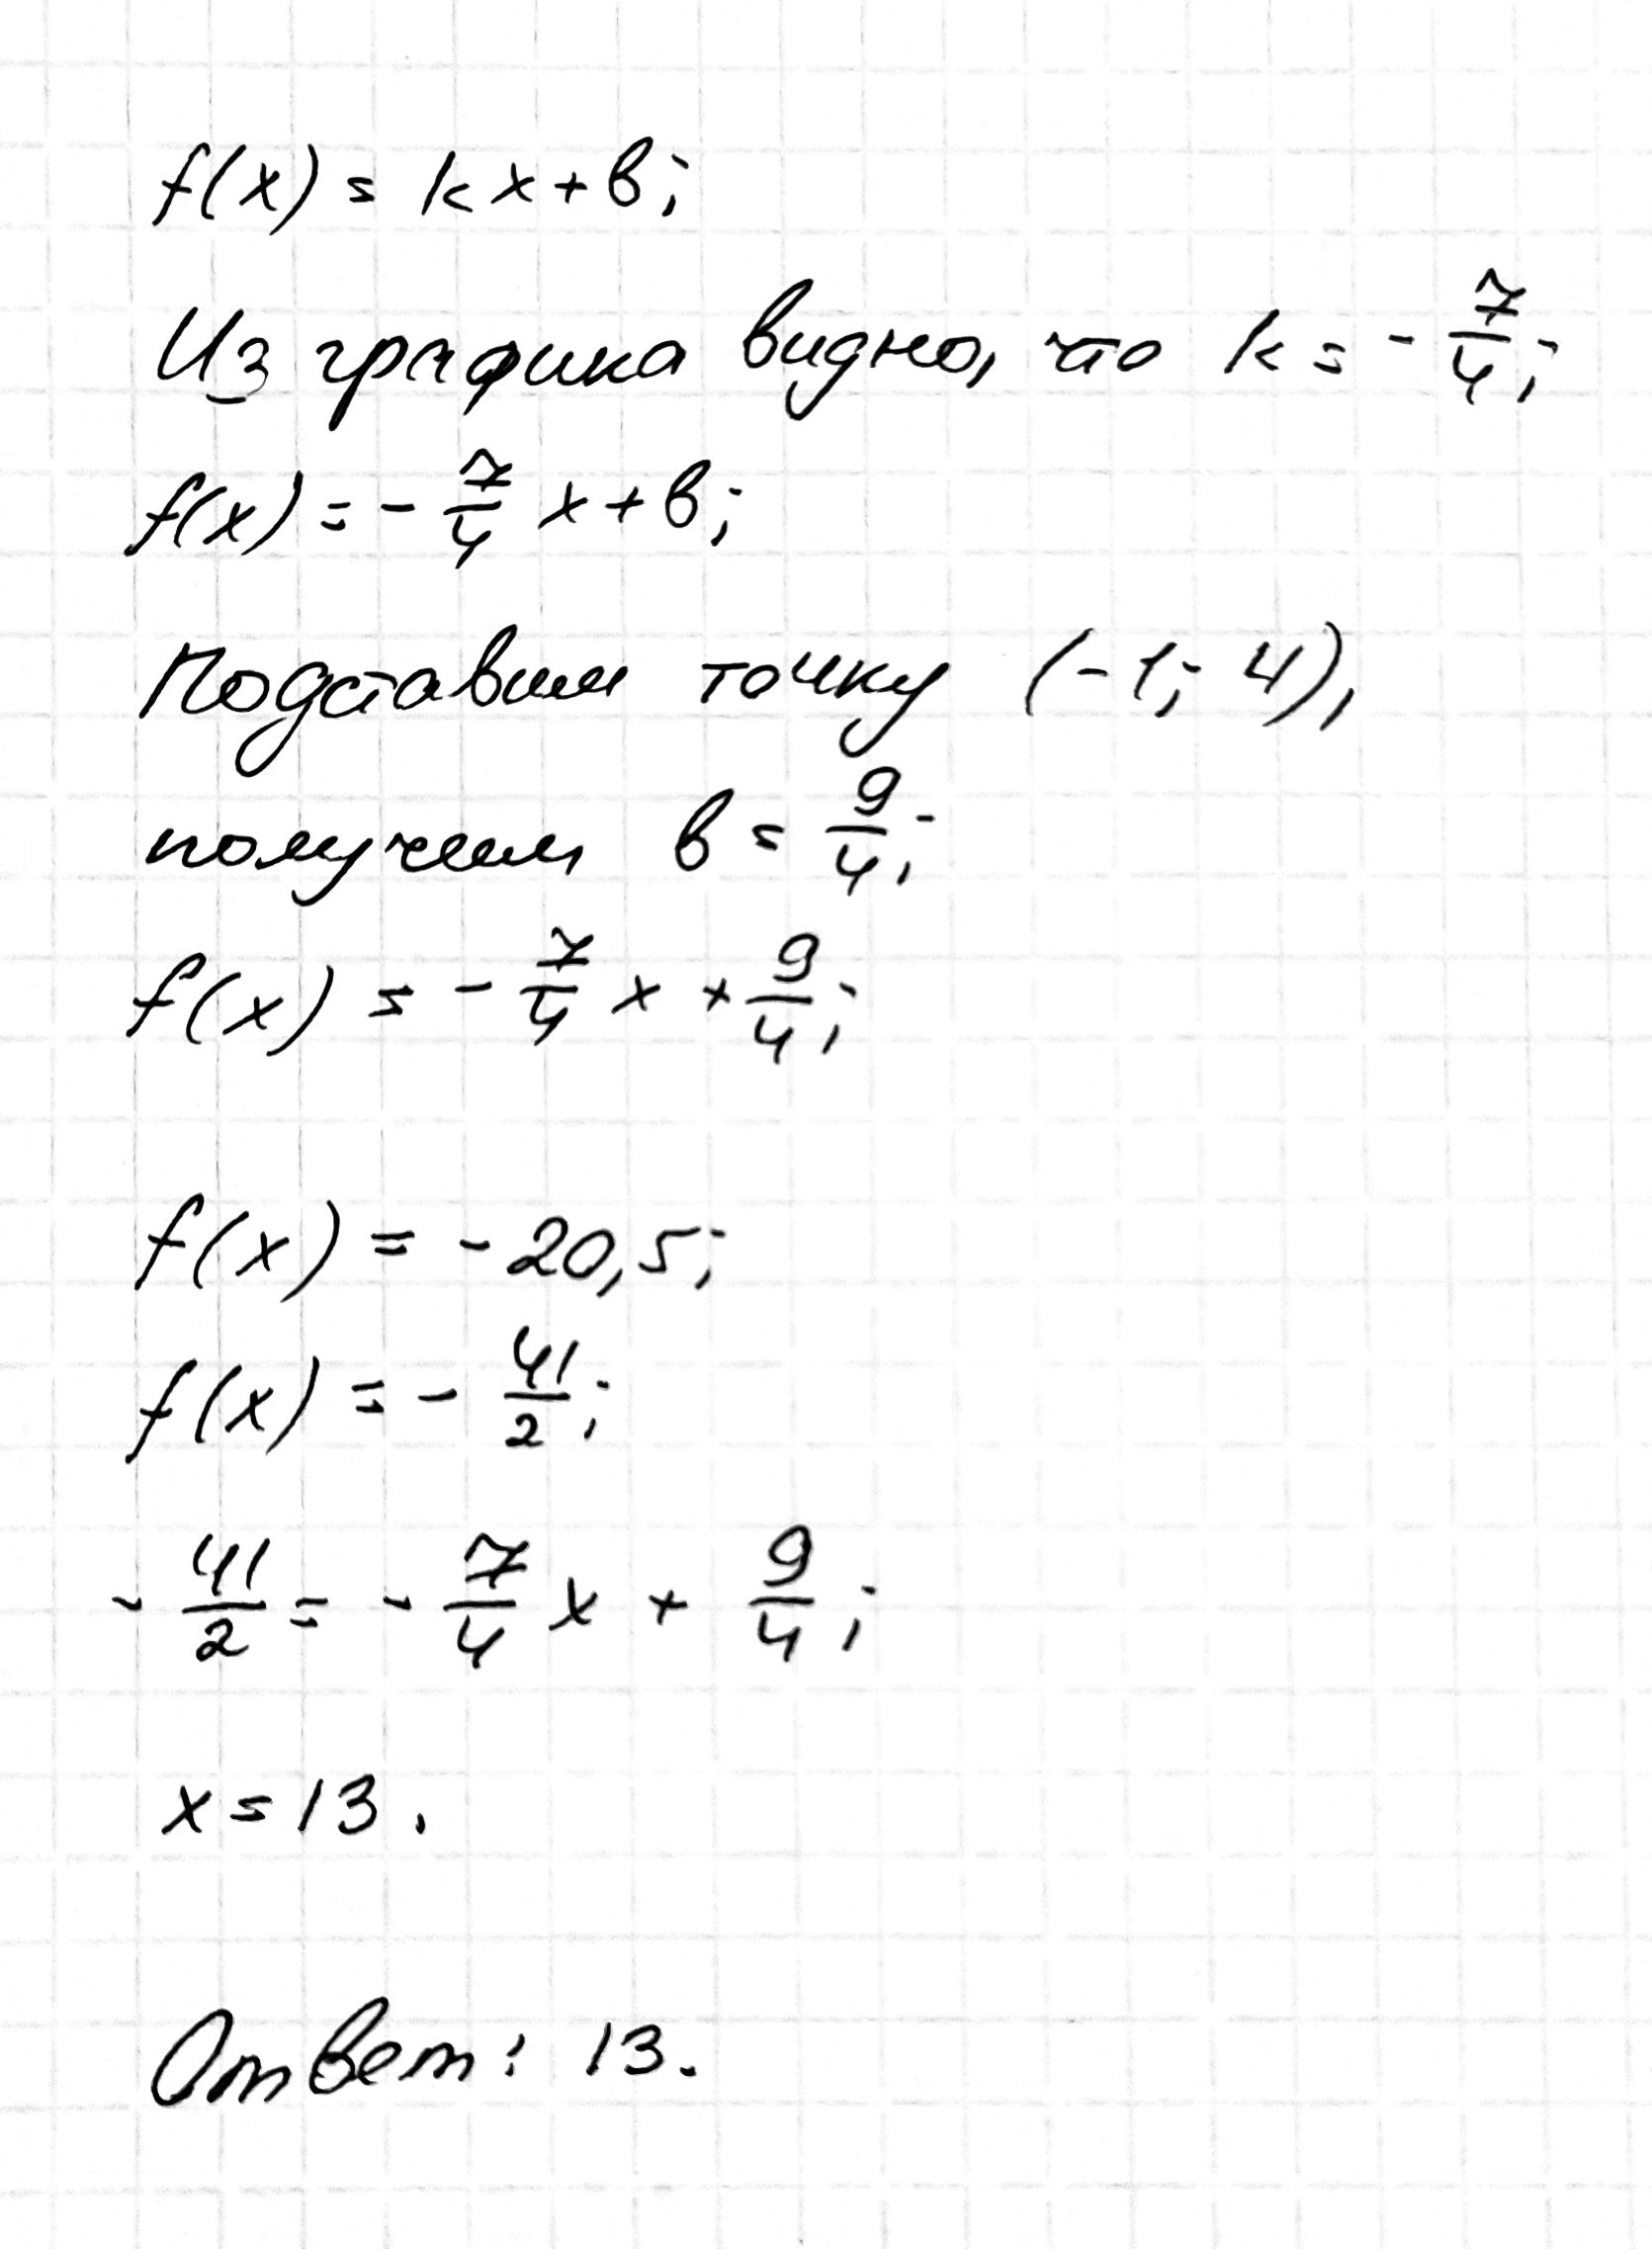 f(x) = kx + b;
Из графика видно, что k = - 7/4;
f(x) = - 7/4 x + b;
Подставим точку (-1; 4),
получим b = 9/4;
f(x) = - 7/4 x + 9/4;
f(x) = - 20,5;
f(x) = - 41/2;
- 41/2 = - 7/4 x + 9/4;
x = 13.
Ответ: 13.